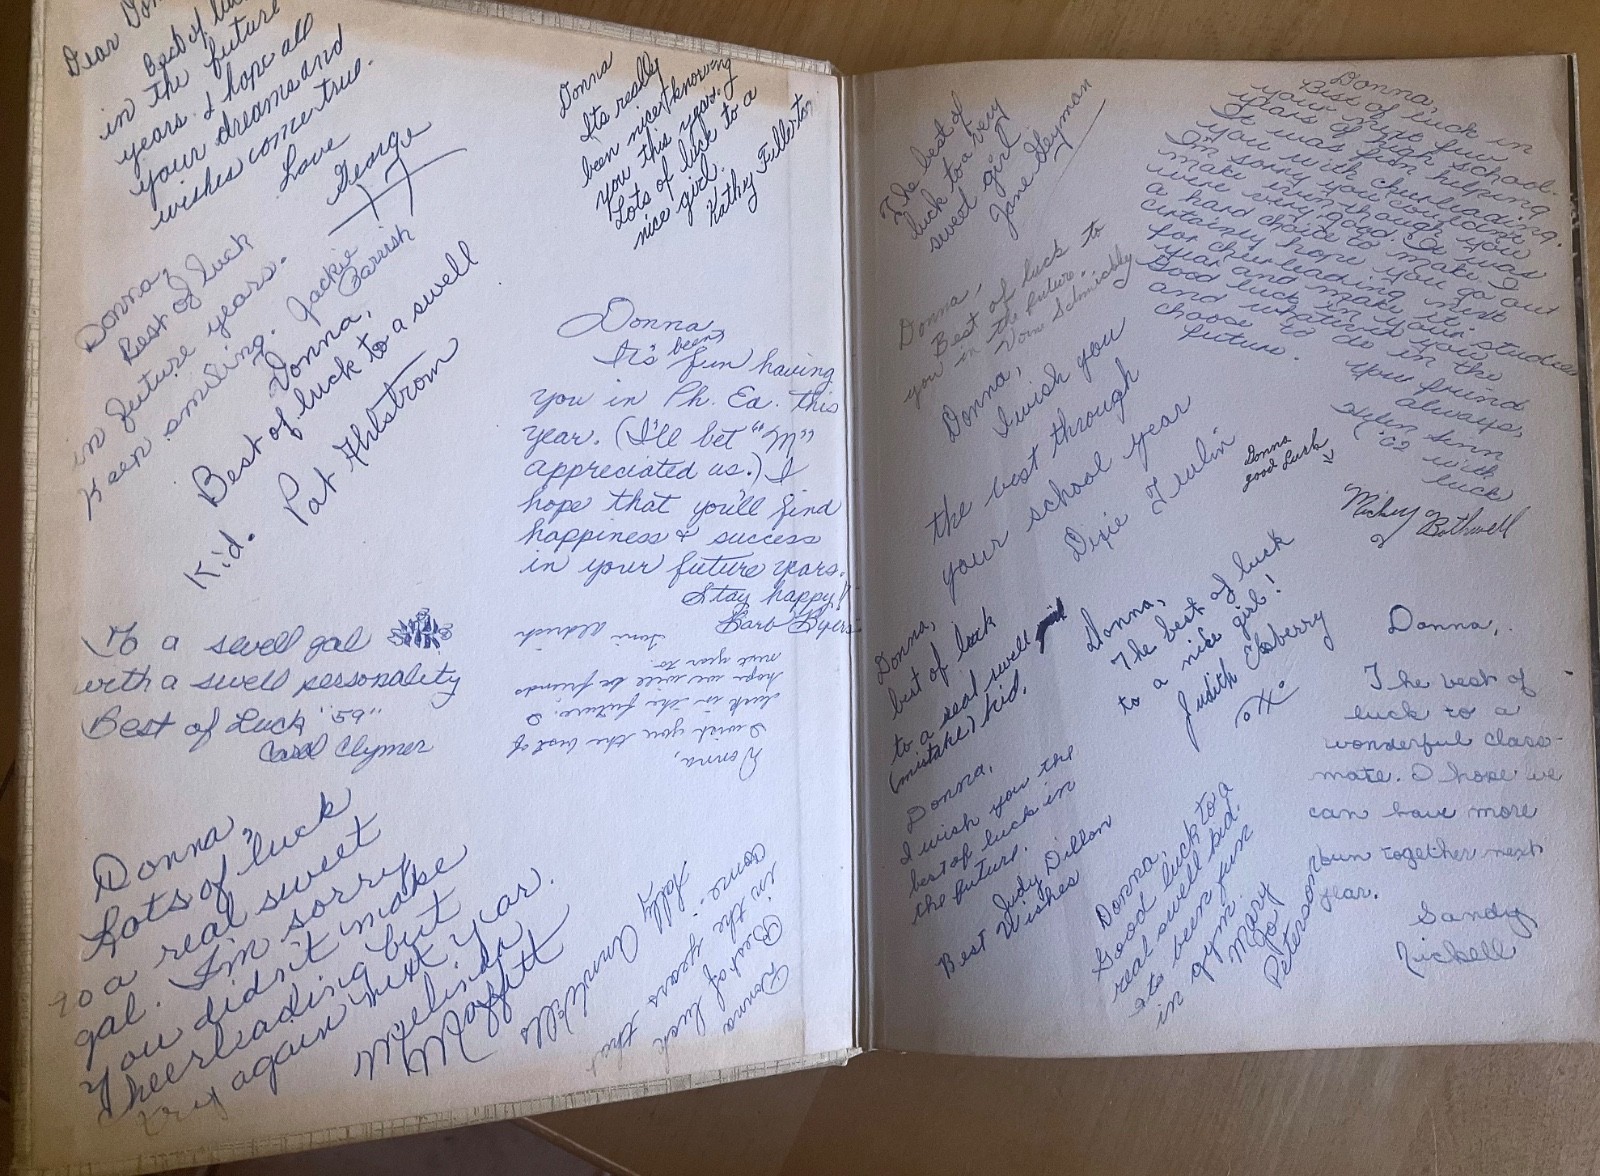 Dear Don
Best of luck
in the future
years. I hope all
your dreams and
wishes come true.
Love
George
Donna
Its really
been nice knowing
you this year.
Lots of luck to a
nice girl.
Kathy Fullerton
Donna,
Best of luck
in future years.
Keep smiling. Jackie
Parrish
Donna,
Best of luck to a swell
Kid. Pat Ahlstrom
Donna,
It's been fun having
you in Ph. Ed. this
year. (I'll bet "M"
appreciated us.) I
hope that you'll find
happiness & success
in your future years.
Stay happy!
Barb Byers
To a swell gal
with a swell personality
Best of Luck "59"
Carol Clymer
Donna,
I wish you the best of
luck in the future. I
hope we will be friends
next year to.
Toni Aldrich
Donna,
Lots of luck
to a real sweet
gal. I'm sorry
you didn't make
cheerleading but
try again next year.
Melinda
Maffitt
Donna
Best of luck
in the years that
come.
Holly Ann Wells
The best of
luck to a very
sweet girl
Jane Heyman
Donna,
Best of luck to
you in the future.
Donna,
I wish you
the best through
your school year
Dixie
Donna,
best of luck
to a real swell
(mistake) kid.
Donna,
I wish you the
best of luck in
the future.
Judy Dillon
Best Wishes
Donna,
Best of luck in
your next few
years of high school.
It was fun helping
you with cheerleading.
I'm sorry you couldn't
make it even though you
were very good. It was
a hard choice to make. I
certainly hope you go out
for cheerleading next
year and make it.
Good luck in your studies
and whatever you
choose to do in the
future.
Your friend
always,
'62 with
luck
Donna
good luck
Mickey Bothwell
Donna,
The best of luck
to a nice girl!
Judith Isberry
Donna,
Good luck to a
real swell kid.
It's been fun
in gym.
Mary
Jo
Peterson
Donna,
The best of
luck to a
wonderful class-
mate. I hope we
can have more
fun together next
year.
Sandy
Nickell